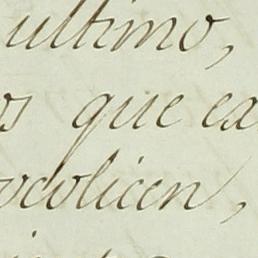 ultimo,
os que ex
ovolicen,